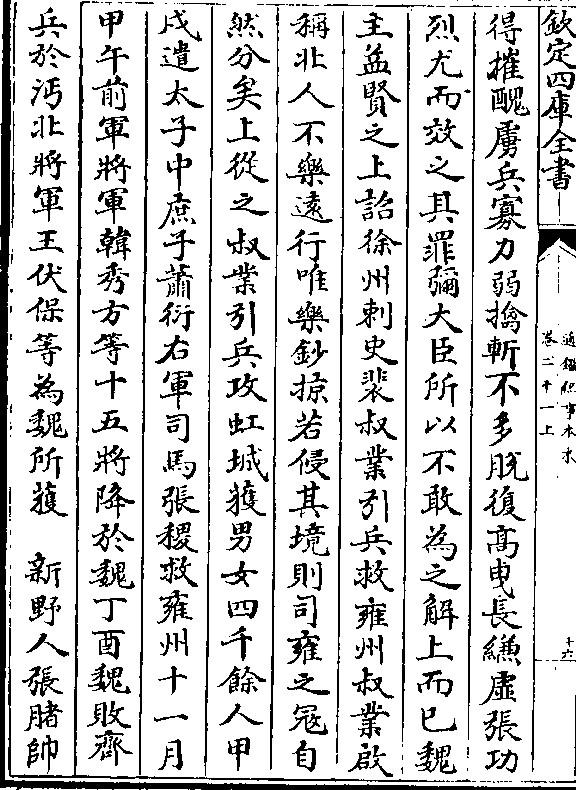 欽定四庫全書
通鑑紀事本末
卷二十一上
十六
得摧醜虜兵寡力弱擒斬不多脱復高曳長縑虛張功
烈尤而效之其罪彌大臣所以不敢為之解上而已魏
主益賢之上詔徐州刺史裴叔業引兵救雍州叔業啟
稱北人不樂遠行唯樂鈔掠若侵其境則司雍之冦自
然分矣上從之叔業引兵攻虹城獲男女四千餘人甲
戌遣太子中庶子蕭衍右軍司馬張稷救雍州十一月
甲午前軍將軍韓秀方等十五將降於魏丁酉魏敗齊
兵於沔北將軍王伏保等為魏所獲　新野人張䐗帥